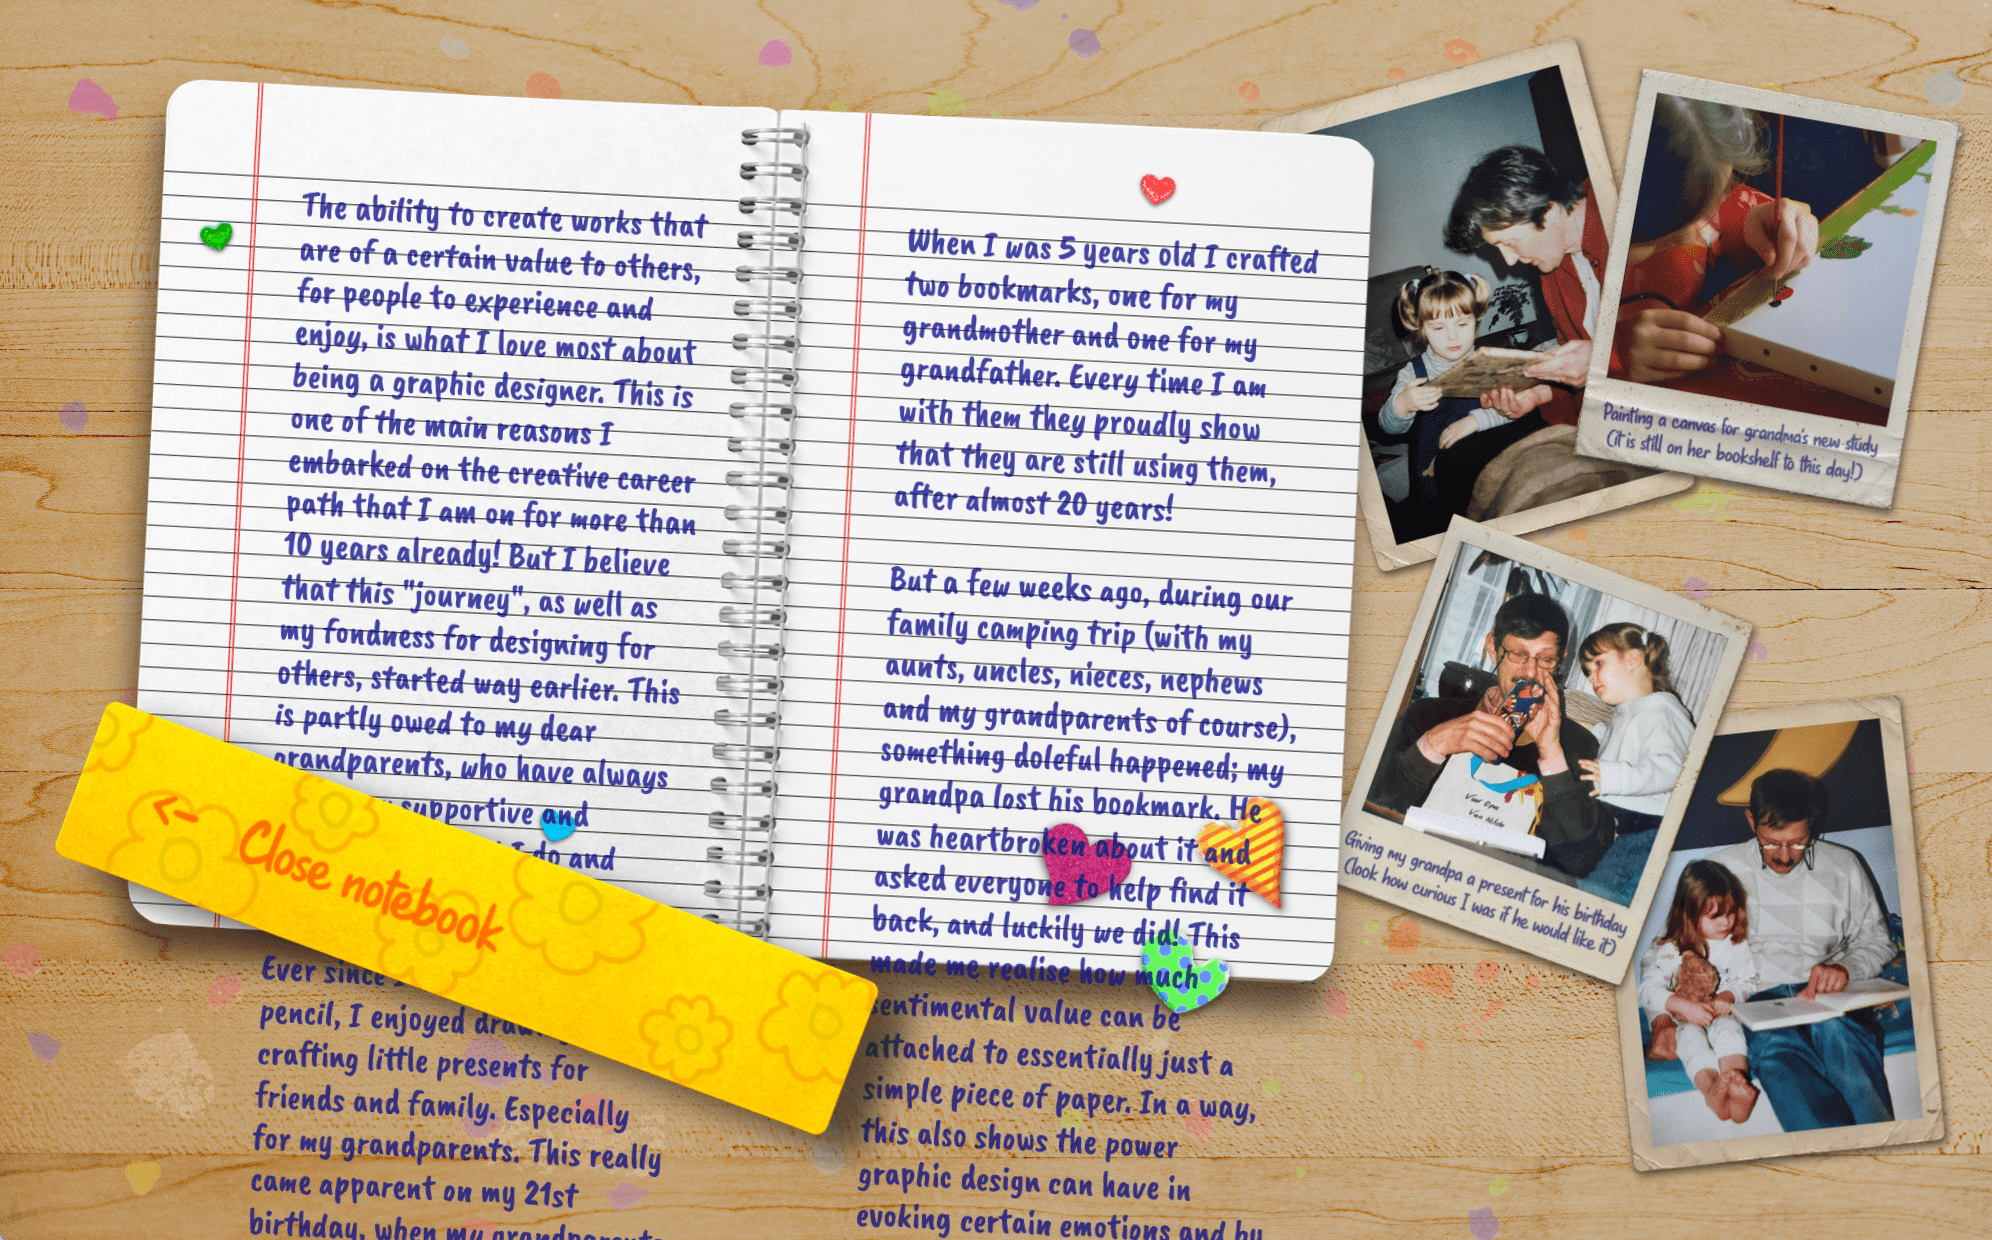 The ability to create works that
are of a certain value to others,
for people to experience and
enjoy, is what I love most about
being a graphic designer. This is
one of the main reasons I
embarked on the creative career
path that I am on for more than
10 years already! But I believe
that this "journey", as well as
my fondness for designing for
others, started way earlier. This
is partly owed to my dear
grandparents, who have always
supportive and
I do and
Ever since
pencil, I enjoyed
crafting little presents for
friends and family. Especially
for my grandparents. This really
came apparent on my 21st
birthday, when my grandparents
<- Close notebook
When I was 5 years old I crafted
two bookmarks, one for my
grandmother and one for my
grandfather. Every time I am
with them they proudly show
that they are still using them,
after almost 20 years!
But a few weeks ago, during our
family camping trip (with my
aunts, uncles, nieces, nephews
and my grandparents of course),
something doleful happened; my
grandpa lost his bookmark. He
was heartbroken about it and
asked everyone to help find it
back, and luckily we did! This
made me realise how much
sentimental value can be
attached to essentially just a
simple piece of paper. In a way,
this also shows the power
graphic design can have in
evoking certain emotions and by
Painting a canvas for grandma's new study
(it is still on her bookshelf to this day!)
Voor Opa
Van Hilde
Giving my grandpa a present for his birthday
(look how curious I was if he would like it)